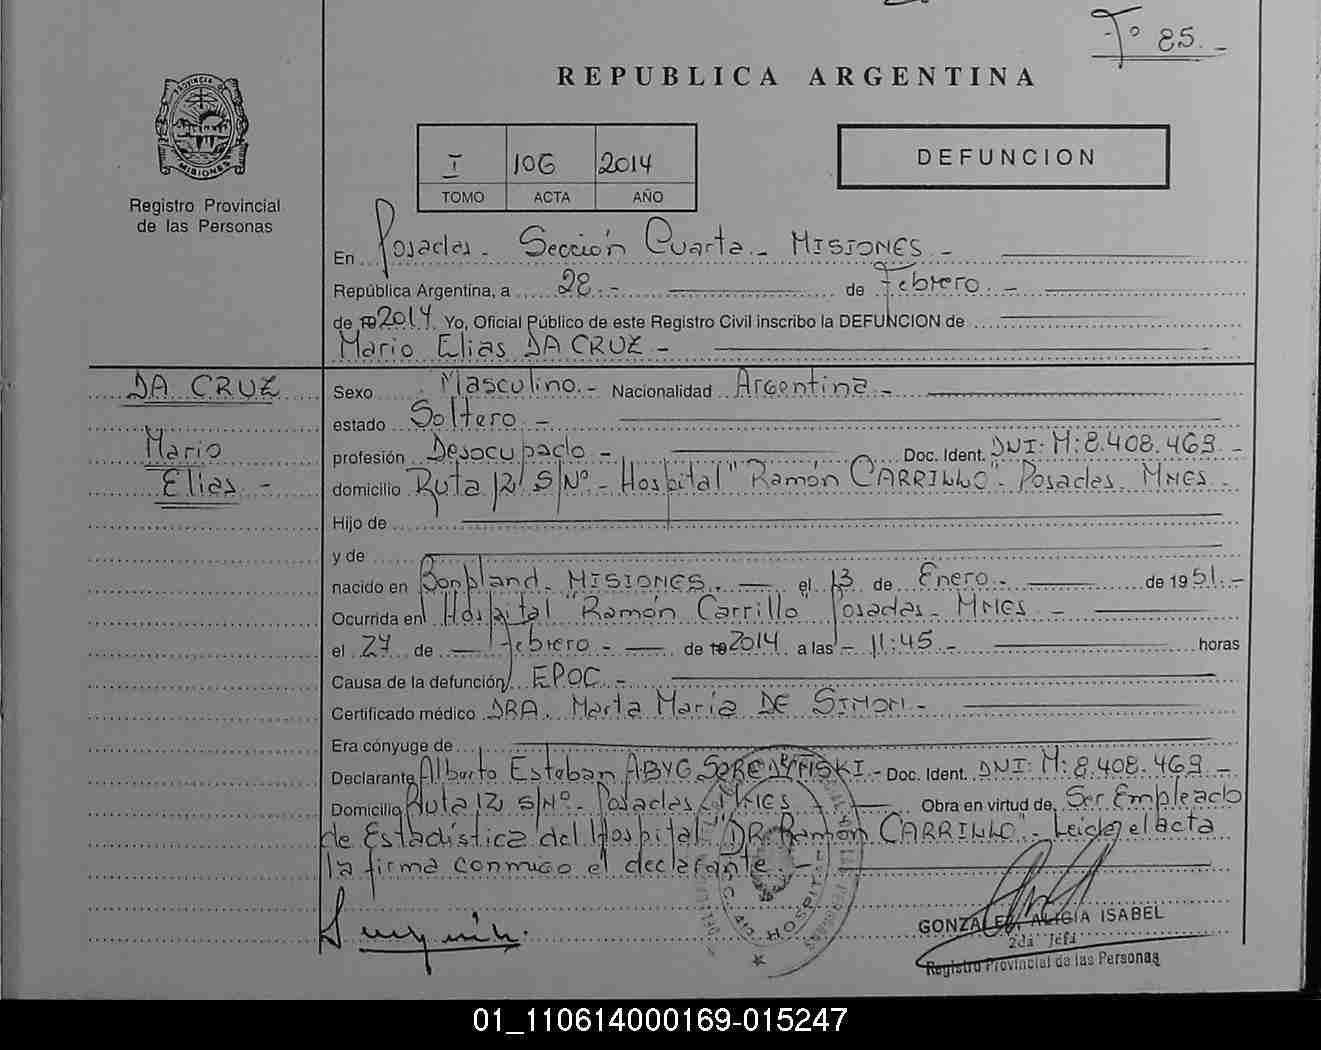 Tº 85.-
REPUBLICA ARGENTINA
PROVINCIA
MISIONES
Registro Provincial
de las Personas
I 106 2014
TOMO ACTA AÑO
DEFUNCION
En Posadas - Sección Cuarta - MISIONES -
República Argentina, a 28.- de Febrero.-
de 19 2014 Yo, Oficial Público de este Registro Civil inscribo la DEFUNCION de
Mario Elias DA CRUZ -
DA CRUZ
Mario
Elias -
Sexo Masculino.- Nacionalidad Argentina -
estado Soltero -
profesión Desocupado - Doc. Ident. DNI: M: 8.408.469 -
domicilio Ruta 12 S/Nº - Hospital "Ramón CARRILLO" - Posadas Mnes -
Hijo de
y de
nacido en Bonpland - MISIONES.- el 13 de Enero - de 1951.-
Ocurrida en Hospital "Ramón Carrillo" Posadas - Mnes -
el 27 de - Febrero - de 19 2014 a las - 11:45 - horas
Causa de la defunción EPOC -
Certificado médico DRA. Marta María DE SIMON -
Era cónyuge de
Declarante Alberto Esteban - Doc. Ident. DNI: M: 8.408.469 -
Domicilio Ruta 12 S/Nº - Posadas - Mnes - Obra en virtud de Ser Empleado
de Estadística del Hospital "DR Ramón CARRILLO" - Leida el acta
la firma conmigo el declarante.-
HOSPITAL
GONZALEZ, ALIGIA ISABEL
2da Jefa
Registro Provincial de las Personas
01_110614000169-015247